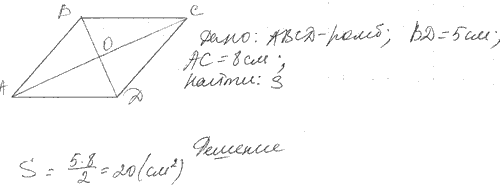 B C
O
A D
Дано: ABCD-ромб; BD=5см;
AC=8см;
Найти: S
Решение
S = 5·8/2 = 20(см²)